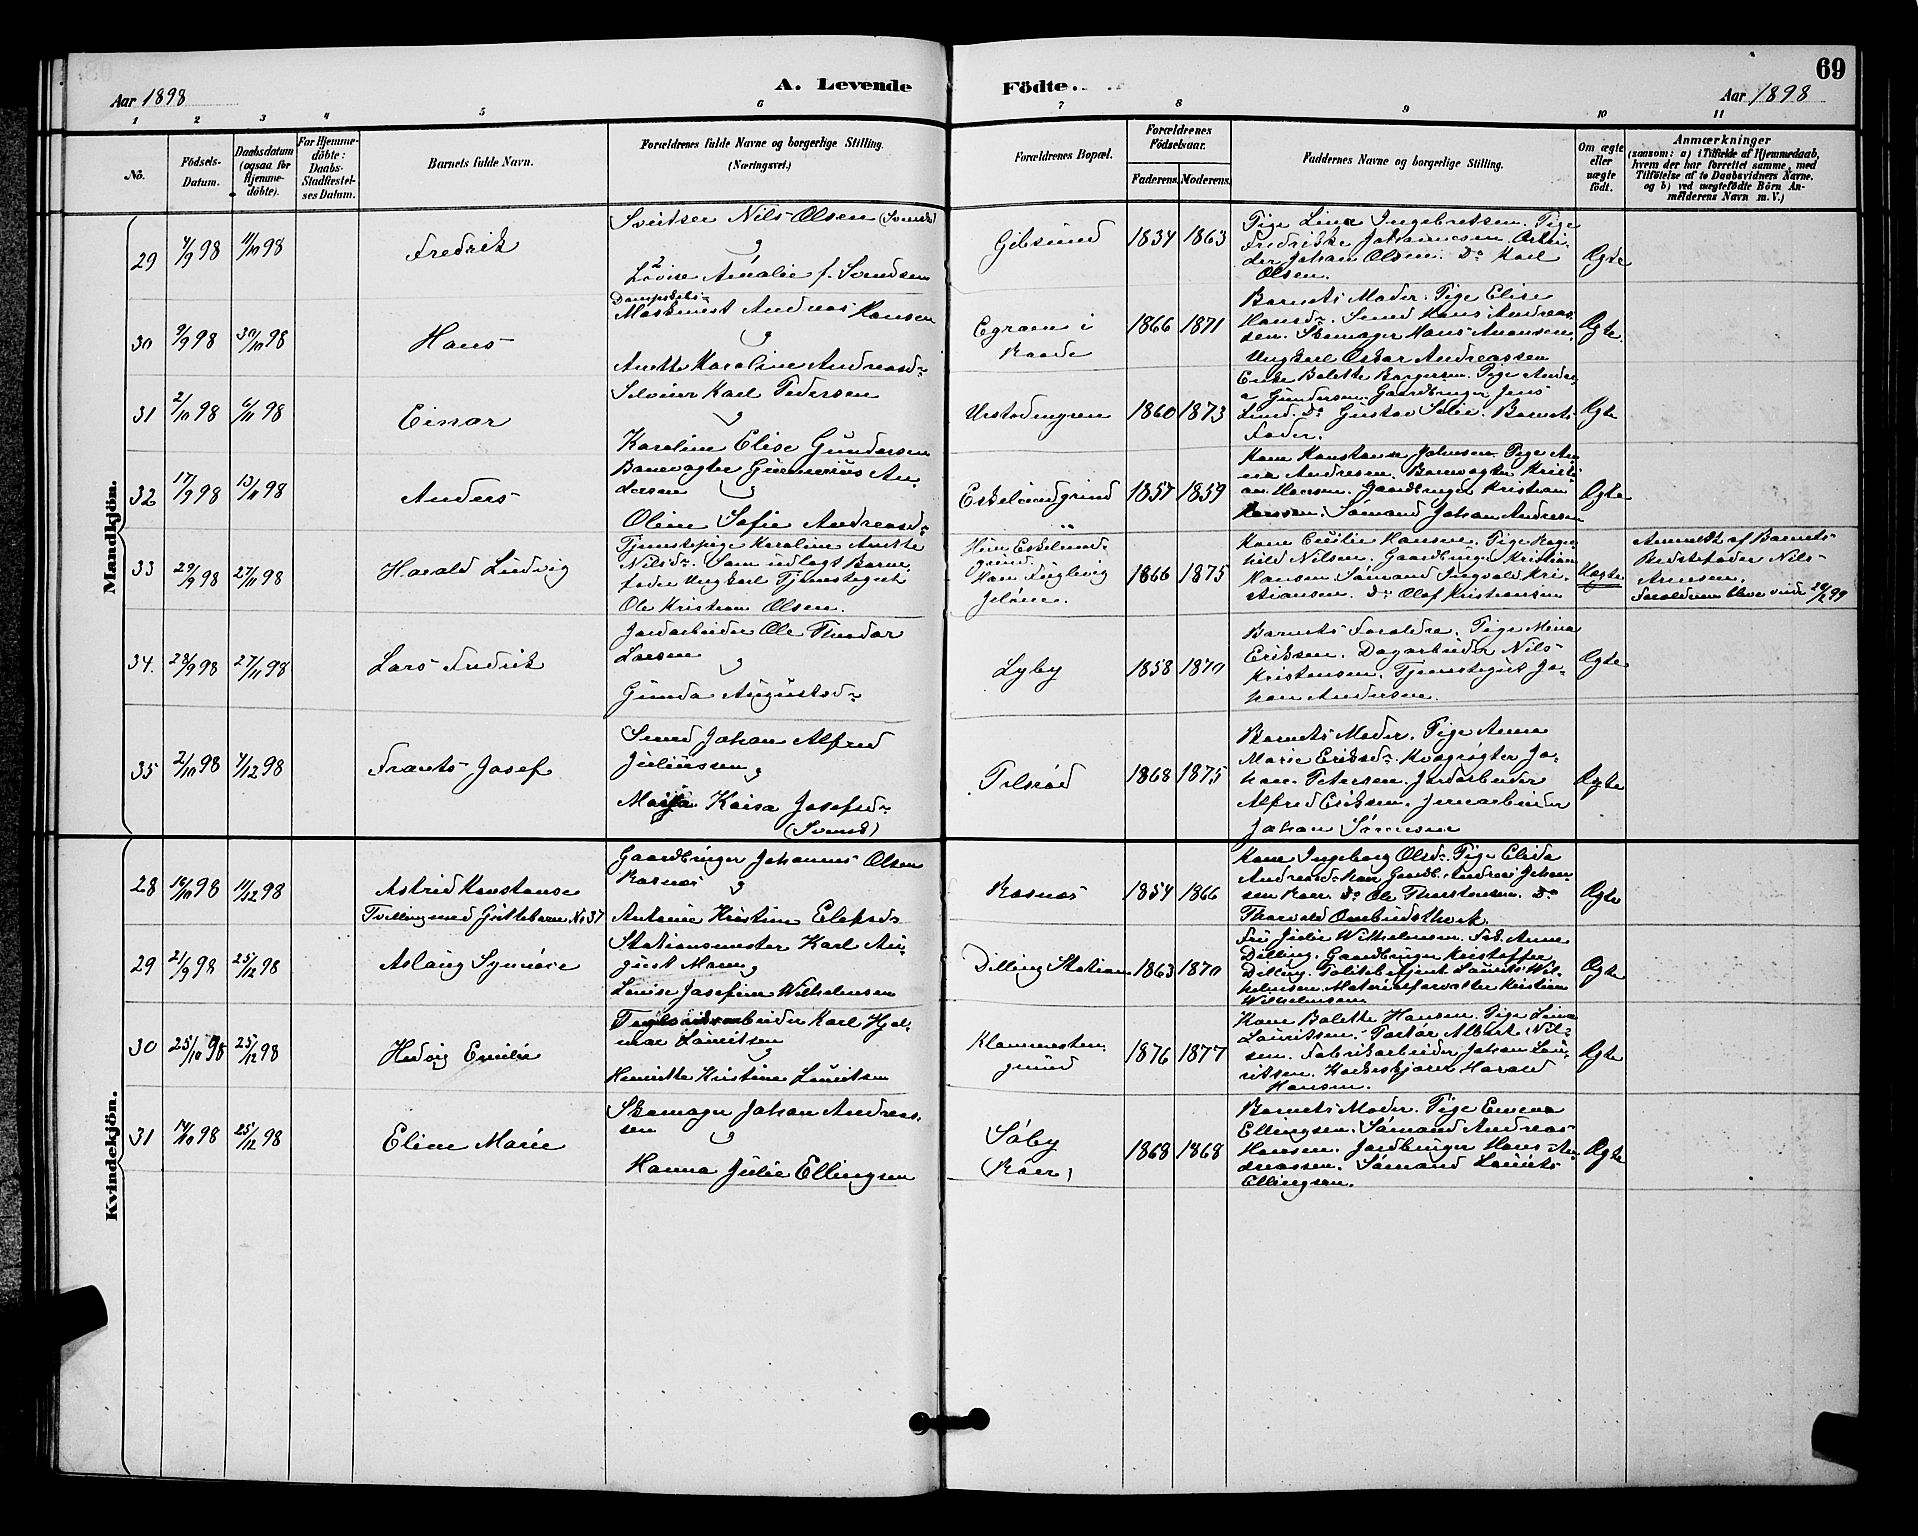 69
Aar 1898
A. Levende
Födte.
Aar 1898
1 2 3 4 5 6 7 8 9 10 11
No.
Födsels-
Datum.
Daabsdatum
(ogsaa for
Hjemme-
döbte).
For Hjemme-
döbte:
Daabs-
Stadfæstel-
ses Datum.
Barnets fulde Navn.
Forældrenes fulde Navne og borgerlige Stilling.
(Næringsvei.)
Forældrenes Bopæl.
Forældrenes
Födselsaar.
Faderens. Moderens.
Faddernes Navne og borgerlige Stilling.
Om ægte
eller
uægte
født.
Anmærkninger
(saasom: a) i Tilfælde af Hjemmedaab,
hvem der har forrettet samme, med
Tilföielse af to Daabsvidners Navne.
og b) ved uægtefödte Börn An-
melderens Navn m. V.)
Mandkjön.
29
4/9 98
Fredrik
Sveitser Nils Olsen (Svensk)
Lovise Amalie f. Svendsen
Gibsund
1834 1863
Tige Lina Ingebretsen. Tige
Fredrikke Johannesen. Arbei-
der Johan Olsen. Do Karl
Olsen.
Ægte
30
9/9 98
30/10 98
Hans
Dampskibs-
Maskinist Andreas Hansen
Anette Karoline Andreasd.
i
Raade
1866 1871
Barnets Moder. Pige Elise
Hansd. Smed Hans Andreas-
sen. Skomager Hans Anansen.
Ungkarl Oskar Andreassen
Ægte
31
2/10 98
6/11 98
Einar
Karl Pedersen
Karoline Elise Gundersen
1860 1873
Enke Bolette Borgersen. Pige Andre-
a Gundersen. Gaardbruger Jens
Lund. Do Gustav Barnets
Fader.
Ægte
32
17/9 98
13/11 98
Anders
Banevogter Gunnerius An-
dersen
Oline Sofie Andreasd.
Eskelundgrind
1857 1859
Kone Konstanse Johnsen. Pige An-
na Andresen. Banevogter Kristi-
an Hansen. Gaardbruger Kristian
Hansen. Sømand Johan Andresen
Ægte
33
29/9 98
27/11 98
Harald Ludvig
Tjenestepige Karoline Anette
Nilsd. Som udlagt Barne-
fader Ungkarl Tjenestegut
Ole Kristian Olsen.
Hun Eskelund-
grind.
Han Fuglevig
Jeløen.
1866 1875
Kone Cecilie Hansen. Pige Ragn-
hild Nilsen. Gaardbruger Kristian
Hansen. Sømand Ingvald Kri-
stiansen. Do Olaf Kristiansen
Uægte
Anmeldt af Barnets
Bedstefader Nils
Arnesen.
Forældrene blev viede 24/2 99
34.
28/9 98
27/11 98
Lars Fredrik
Jordarbeider Ole Theodor
Larsen
Gunda Augustsd.
Lyby
1858 1870
Barnets Forældre. Pige Mina
Eriksen. Dagarbeider Nils
Kristensen. Tjenestegut Jo-
han Andersen.
Ægte
35
2/10 98
4/12 98
Frants Josef
Smed Johan Alfred
Juliussen
Maja Kaisa Josefsd.
(Svensk)
1868 1875
Barnets Moder. Pige Anna
Marie Eriksd. Kvægrøgter Jo-
han Petersen. Jordarbeider
Alfred Eriksen. Jernarbeider
Johan Sørensen
Ægte
Kvindekjön.
28
16/10 98
11/12 98
Astrid Konstanse
Tvilling med Guttebarn No 37
Gaardbruger Johannes Olsen
Rosnæs
Antonie Kristine Eleksd.
Rosnæs
1854 1866
Kone Ingeborg Olsd. Pige Elida
Andreasd. Gaardb. Andreas Johan-
sen Roer. Do Ole Thorstensen. Do
Thorvald Ombudstvedt
Ægte
29
21/9 98
25/12 98
Aslaug Synnøve
Stationsmester Karl Au-
gust Mann
Louise Josefine Wilhelmsen
Dilling Station
1863 1870
Fru Julie Wilhelmsen. Frk. Anne
Dilling. Gaardbruger Kristoffer
Dilling. Politibetjent Laurits Wil-
helmsen. Materialforvalter Kristian
Wilhelmsen
Ægte
30
25/10 98
25/12 98
Hedvig Emilie
Teglværksarbeider Karl Hjal-
mar Lauritsen
Henriette Kristine Lauritsen
Klommesten-
grind
1876 1877
Kone Bolette Hansen. Pige Lina
Lauritsen. Albert Nil-
sen. Fabrikarbeider Johan Lau-
ritsen. Harald
Hansen.
Ægte
31
14/10 98
25/12 98
Eline Marie
Skomager Johan Andreas-
sen
Hanna Julie Ellingsen
Søby
(Roer)
1868 1868
Barnets Moder. Pige Emma
Ellingsen. Sømand Andreas
Hansen. Jordbruger Hans An-
dreassen. Sømand Laurits
Ellingsen.
Ægte